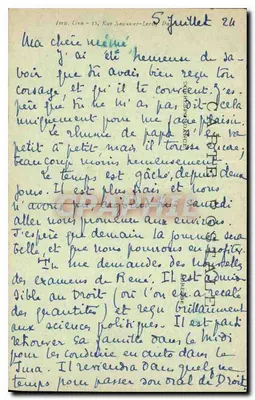 Imp. Lion - 23, Rue
5 Juillet 24
Ma chère mémé
J'ai été heureuse de sa-
voir que tu avais bien reçu ton
corsage, et qu'il te convient. J'es-
père que tu ne m'as pas dit cela
uniquement pour me faire plaisir.
Le rhume de papa va
petit à petit mais il tousse encore,
beaucoup moins heureusement.
Le temps est gâché, depuis deux
jours. Il est plus frais et nous
n'avons pas
aller nous promener aux environs.
J'espère que demain la journée sera
belle, et que nous pourrons en profiter.
Tu me demandes des nouvelles
des examens de René. Il est admis-
sible au Droit (où l'on en a recalé
des quantités) et reçu brillamment
aux sciences politiques. Il est parti
retrouver sa famille dans le Midi
pour les conduire en auto dans le
Jura. Il reviendra dans quelque
temps pour passer son oral de Droit.